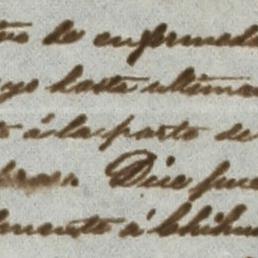 de enfermeda
hasta ultimo
á la parte de
Dice fue
mente á Chihu